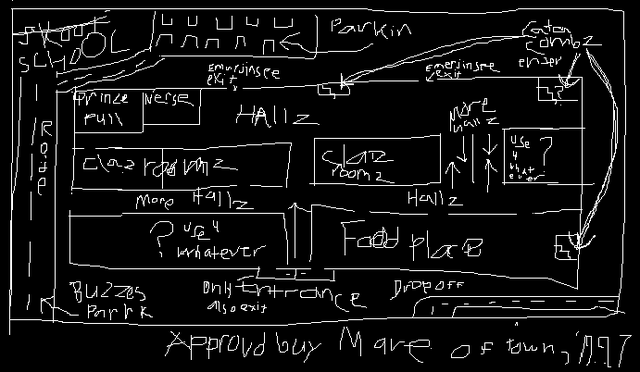 SCHOOL
Parkin
Caton
Comboz
enter
Emursinsee
exit
Emerjinsee
exit
Prince
Pull
Nerse
HAllz
More
hallz
Use
4
what
ever
?
Roide
Clazroomz
Claz
roomz
More Hallz
Hallz
? Use 4
Whatever
Food place
Buzzes
Park
Only Entrance
also exit
Drop off
Approvd buy Mare of town, 1997